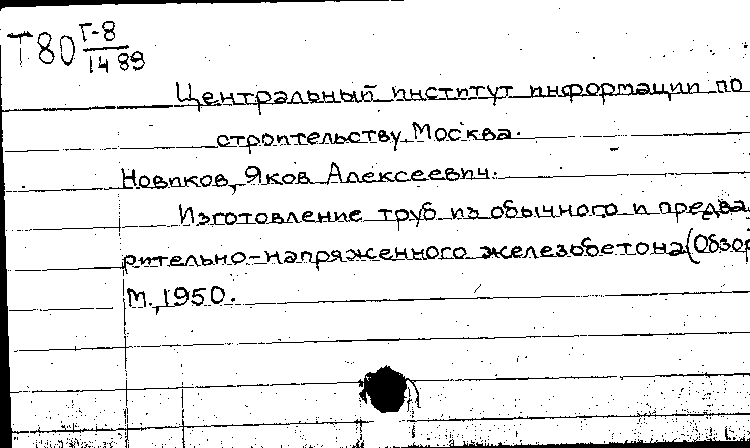 Т80 Г-8
1489
Центральный институт информации по
строительству. Москва.
Новиков, Яков Алексеевич.
Изготовление труб из обычного и предва
рительно-напряженного железобетона (Обзор
М., 1950.